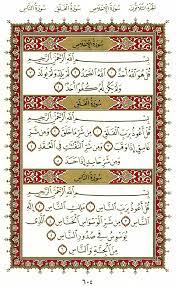 الجزء الثلاثون سورة الإخلاص سورة الفلق سورة الناس
سورة الإخلاص
بسم الله الرحمن الرحيم
قل هو الله أحد ١ الله الصمد ٢ لم يلد ولم يولد ٣
ولم يكن له كفوا أحد ٤
سورة الفلق
بسم الله الرحمن الرحيم
قل أعوذ برب الفلق ١ من شر ما خلق ٢ ومن شر
غاسق إذا وقب ٣ ومن شر النفاثات في العقد ٤
ومن شر حاسد إذا حسد ٥
سورة الناس
بسم الله الرحمن الرحيم
قل أعوذ برب الناس ١ ملك الناس ٢
إله الناس ٣ من شر الوسواس الخناس ٤ الذي
يوسوس في صدور الناس ٥
من الجنة والناس ٦
٦٠٤